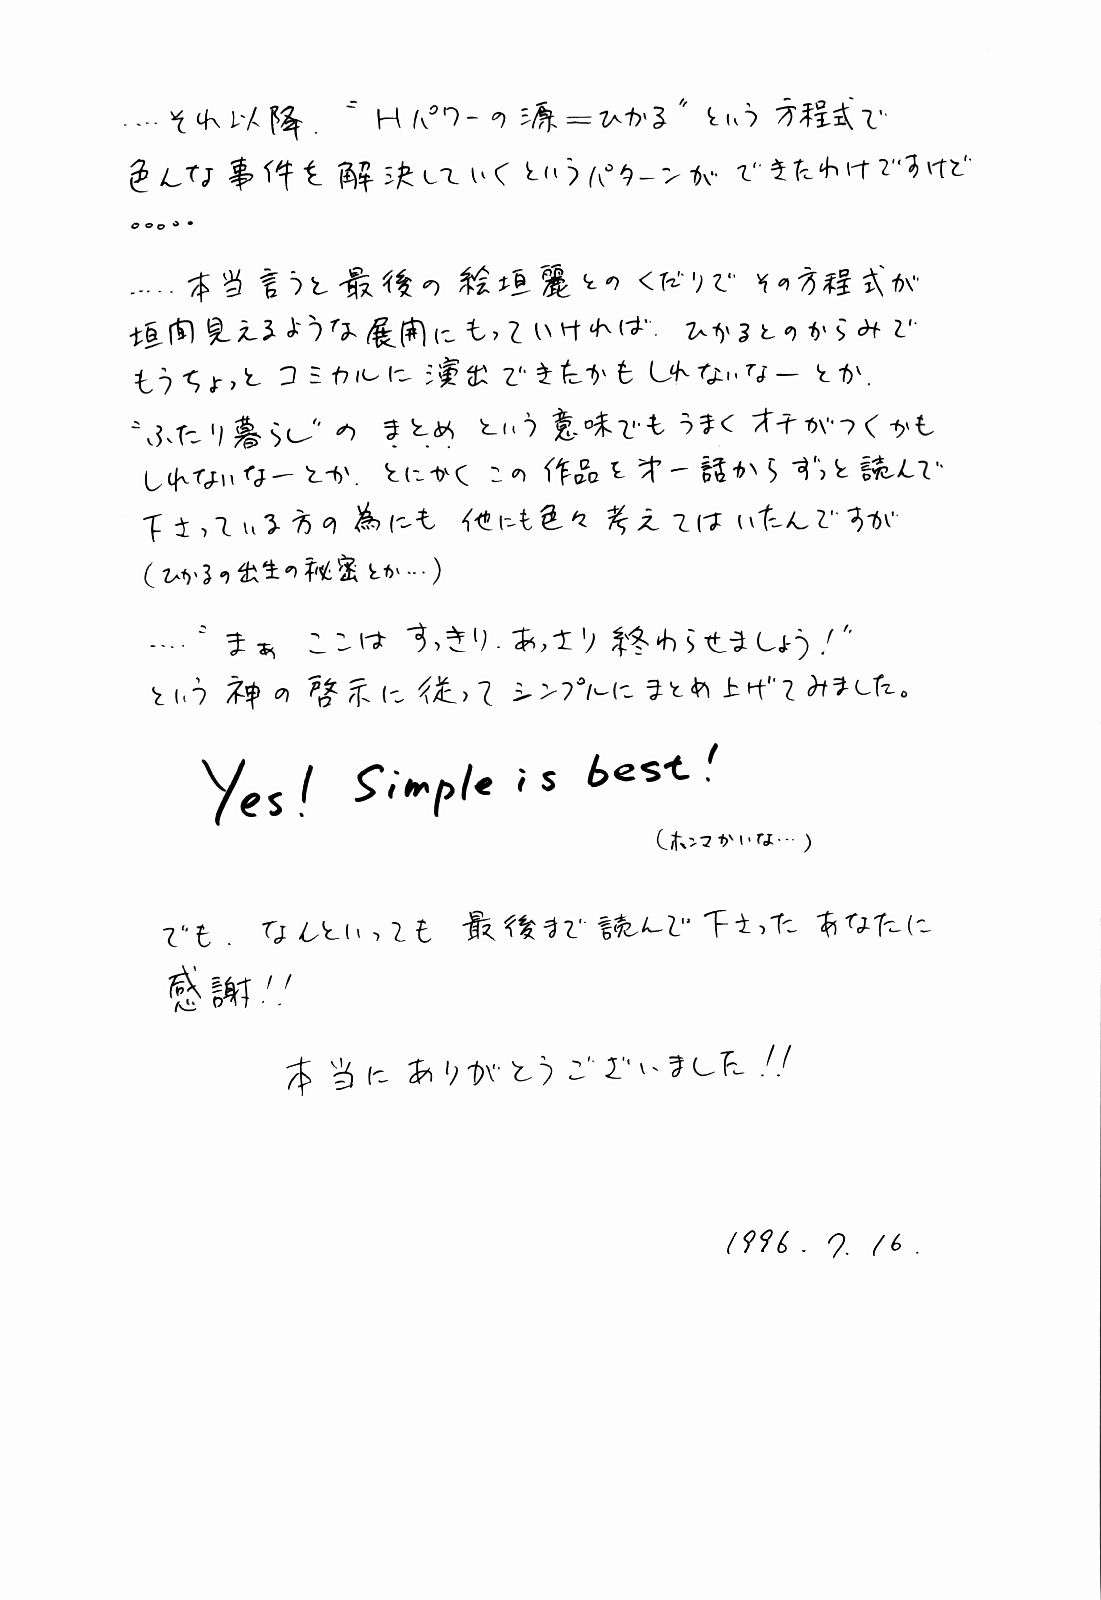 ....それ以降、"Hパワーの源＝ひかる"という方程式で
色んな事件を解決していくというパターンができたわけですけど
。。。。。
.....本当言うと最後の絵垣麗とのくだりでその方程式が
垣間見えるような展開にもっていければ、ひかるとのからみで
もうちょっとコミカルに演出できたかもしれないなーとか、
"ふたり暮らし"のまとめという意味でもうまくオチがつくかも
しれないなーとか、とにかくこの作品を第一話からずっと読んで
下さっている方の為にも他にも色々考えてはいたんですが
(ひかるの出生の秘密とか...)
...."まぁ ここは すっきり、あっさり終わらせましょう!"
という神の啓示に従ってシンプルにまとめ上げてみました。
Yes! Simple is best!
(ホンマかいな...)
でも、なんといっても最後まで読んで下さったあなたに
感謝!!
本当にありがとうございました!!
1996.7.16.